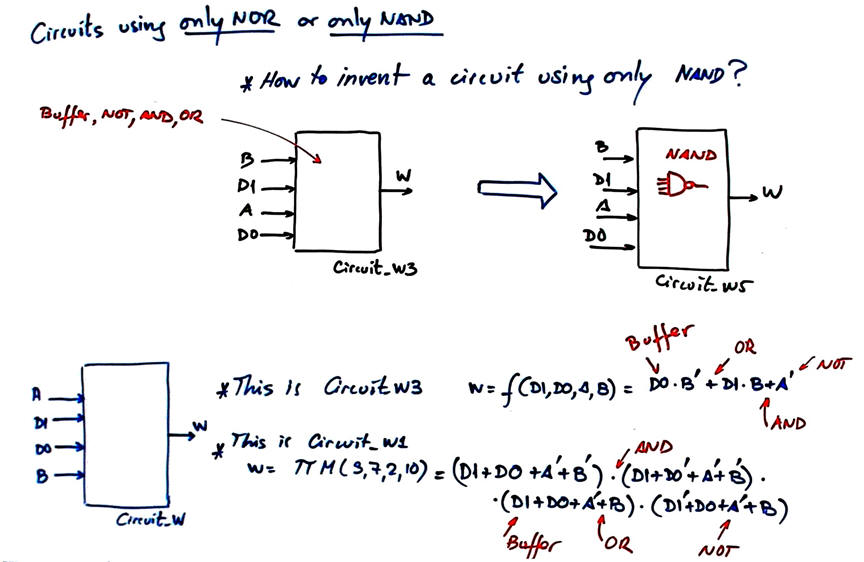 Circuits using only NOR or only NAND
* How to invent a circuit using only NAND?
Buffer, NOT, AND, OR
B
D1
A
D0
W
Circuit_W3
B
D1
A
D0
NAND
W
Circuit_W5
A
D1
D0
B
W
Circuit_W
* This is Circuit W3 W = f(D1, D0, A, B) = D0 · B' + D1 · B + A'
Buffer
OR
NOT
AND
* This is Circuit_W1
W = ΠM(3,7,2,10) = (D1+D0+A'+B') · (D1+D0'+A'+B') ·
· (D1+D0+A'+B) · (D1'+D0+A'+B)
AND
Buffer
OR
NOT